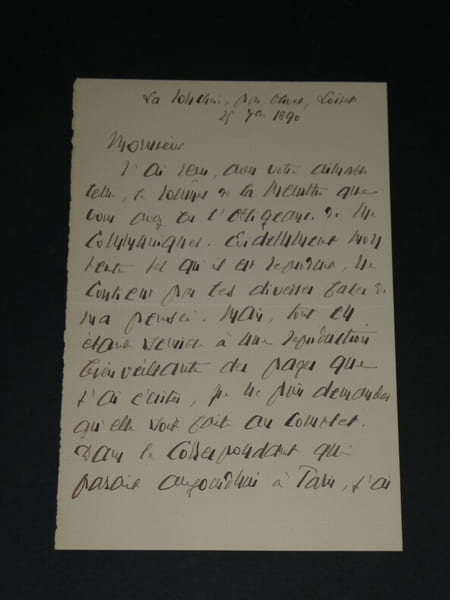 La      , par Olivet, Loiret
25 7bre 1890
Monsieur
J'ai reçu, avec votre aimable
lettre, le        de la         que
vous avez eu l'obligeance de me
communiquer. Evidemment mon
texte tel qu'il est reproduit, ne
contient pas les diverses faces de
ma pensée. Mais, tout en
étant         à une reproduction
bienveillante des pages que
j'ai écrites, je ne puis demander
qu'elle soit faite au complet.
Dans le Correspondant qui
paraît aujourd'hui à Paris, j'ai